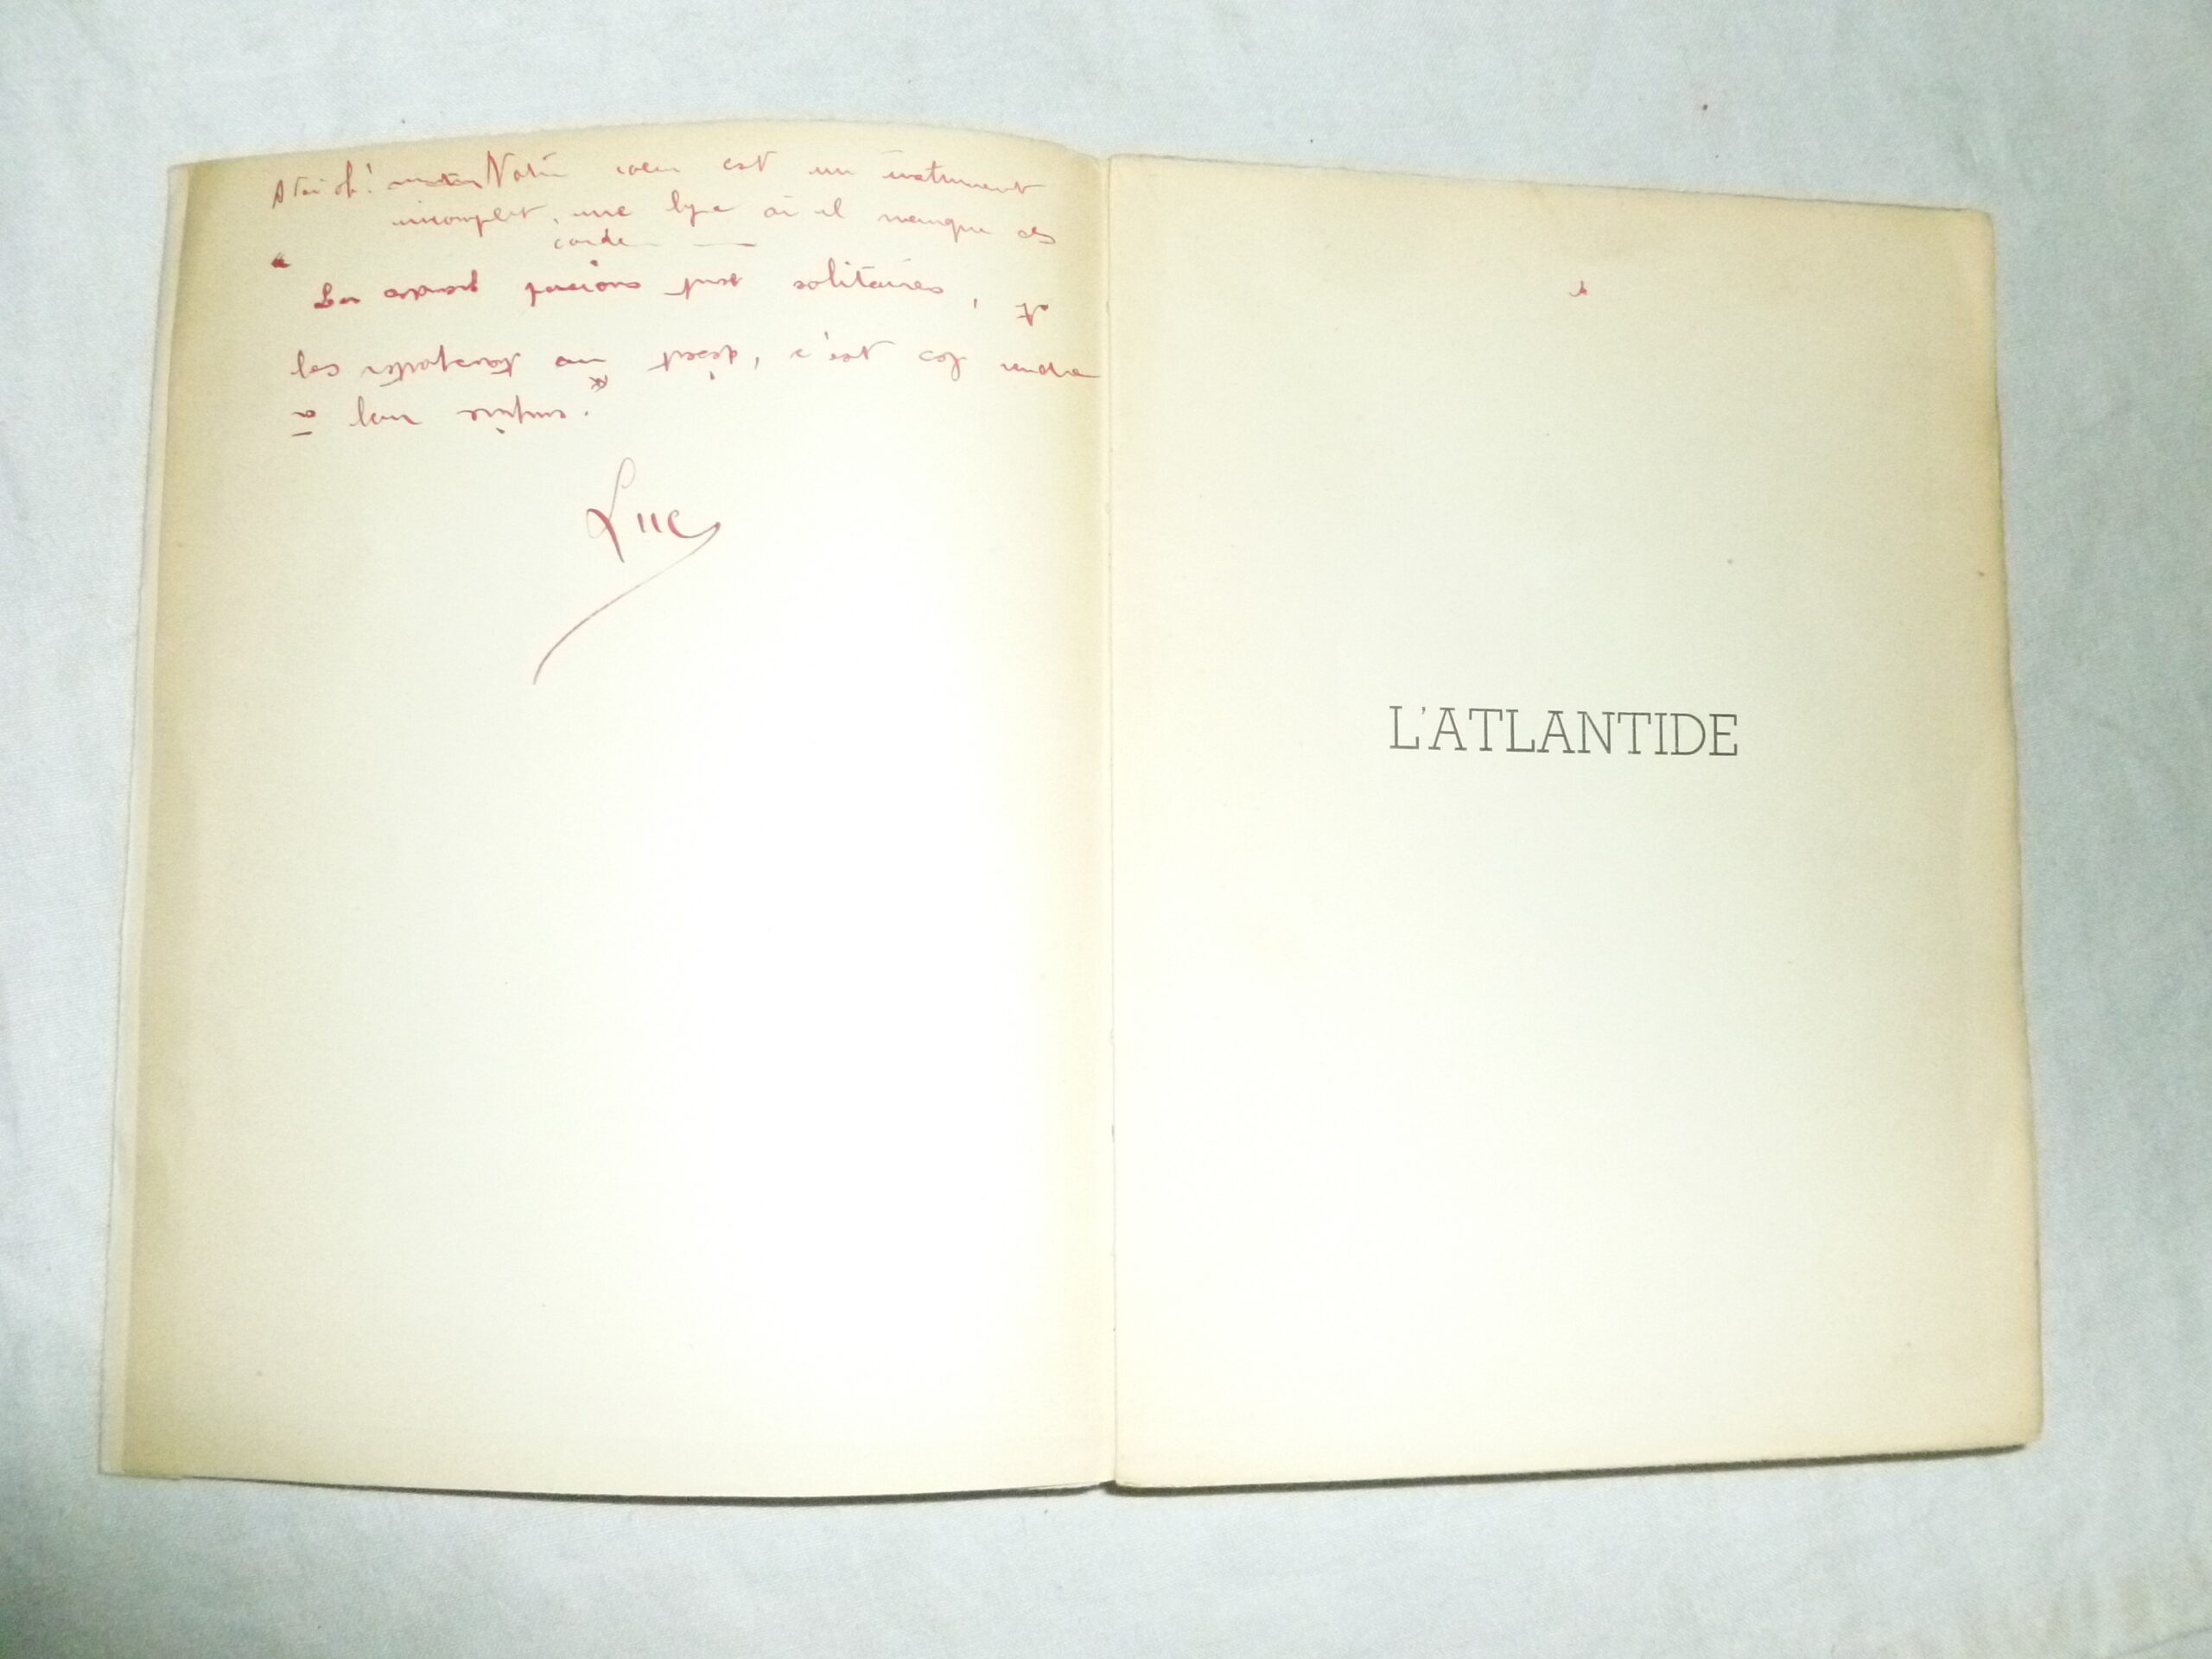 A toi oh! Notre coeur est un instrument
incomplet, une lyre où il manque des
cordes
"Les grandes passions sont solitaires, et
les transporter au désert, c'est les rendre
à leur empire."
Luc
L'ATLANTIDE